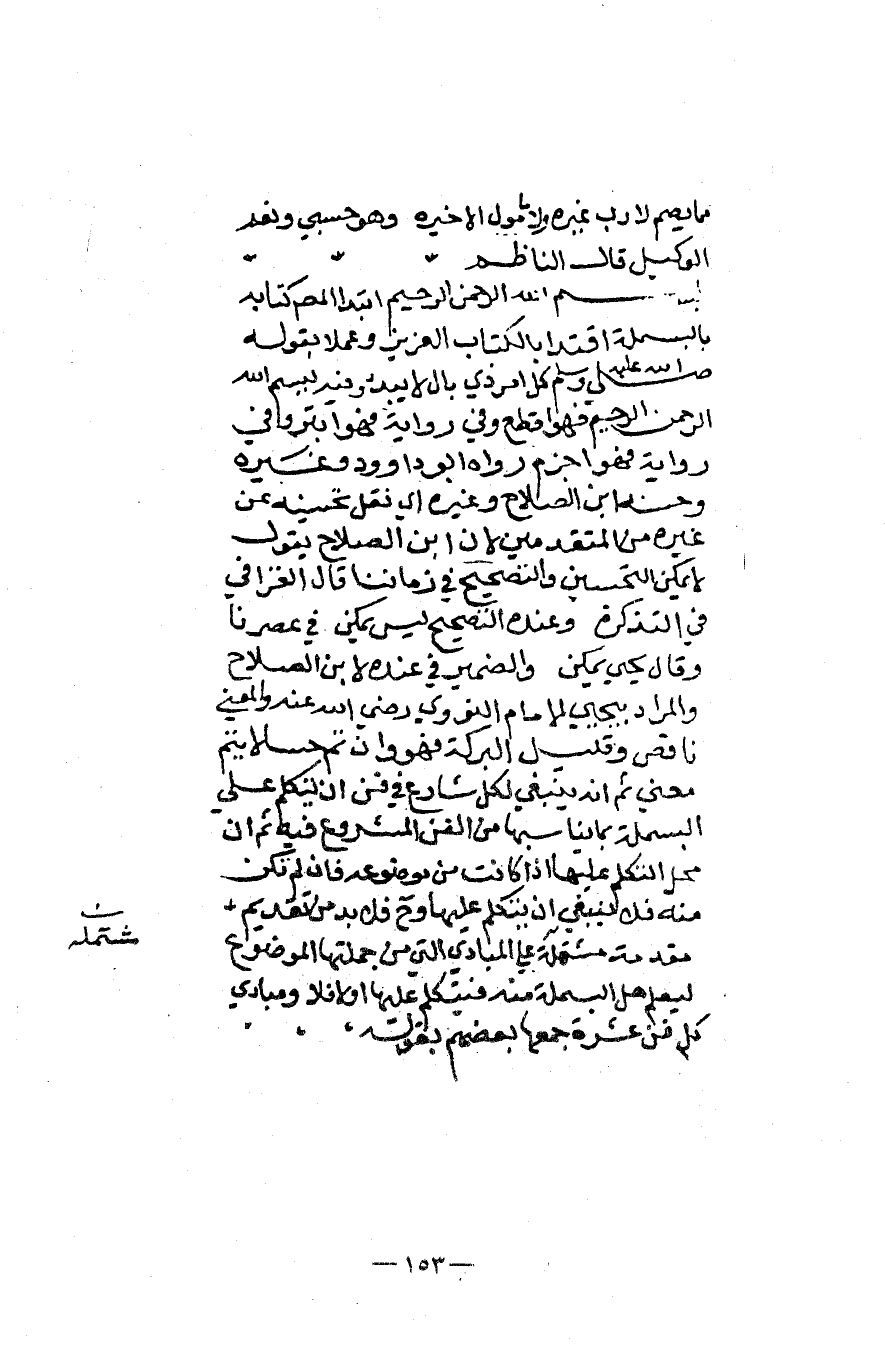 مما يصم لا رب غيره ولا مأمول الا خيره وهو حسبي ونعم
الوكيل قال الناظم
بسم الله الرحمن الرحيم ابتدا المص كتابه
بالبسملة اقتدا بالكتاب العزيز وعملا بقوله
صلي الله عليه وسلم كل امر ذي بال لا يبدؤ فيه ببسم الله
الرحمن الرحيم فهو اقطع وفي رواية فهو ابتر وفي
رواية فهو اجزم رواه ابو داوود وغيره
وحسنه ابن الصلاح وغيره اي نقل تحسينه عن
غيره من المتقدمين لان ابن الصلاح يقول
لا يمكن التحسين والتصحيح في زماننا قال العراقي
في التذكرة وعنده التصحيح ليس يمكن في عصرنا
وقال يحيي يمكن والضمير في عنده لابن الصلاح
والمراد بيحيي الامام النووي رضي الله عنه والمعني
ناقص وقليل البركة فهو وان تم حسا لا يتم
معني ثم انه ينبغي لكل شارع في فن ان يتكلم علي
البسملة بما يناسبها من الفن المشروع فيه ثم ان
محل التكلم عليها اذا كانت من موضوعه فان لم تكن
منه فلا ينبغي ان يتكلم عليها وح فلا بد من تقديم
مقدمة مشتملة علي المبادي التي من جملتها الموضوع
ليعلم هل البسملة منه فيتكلم عليها او لا فلا ومبادي
كل فن عشرة جمعها بعضهم بقوله
ن
مشتمله
— ١٥٣ —